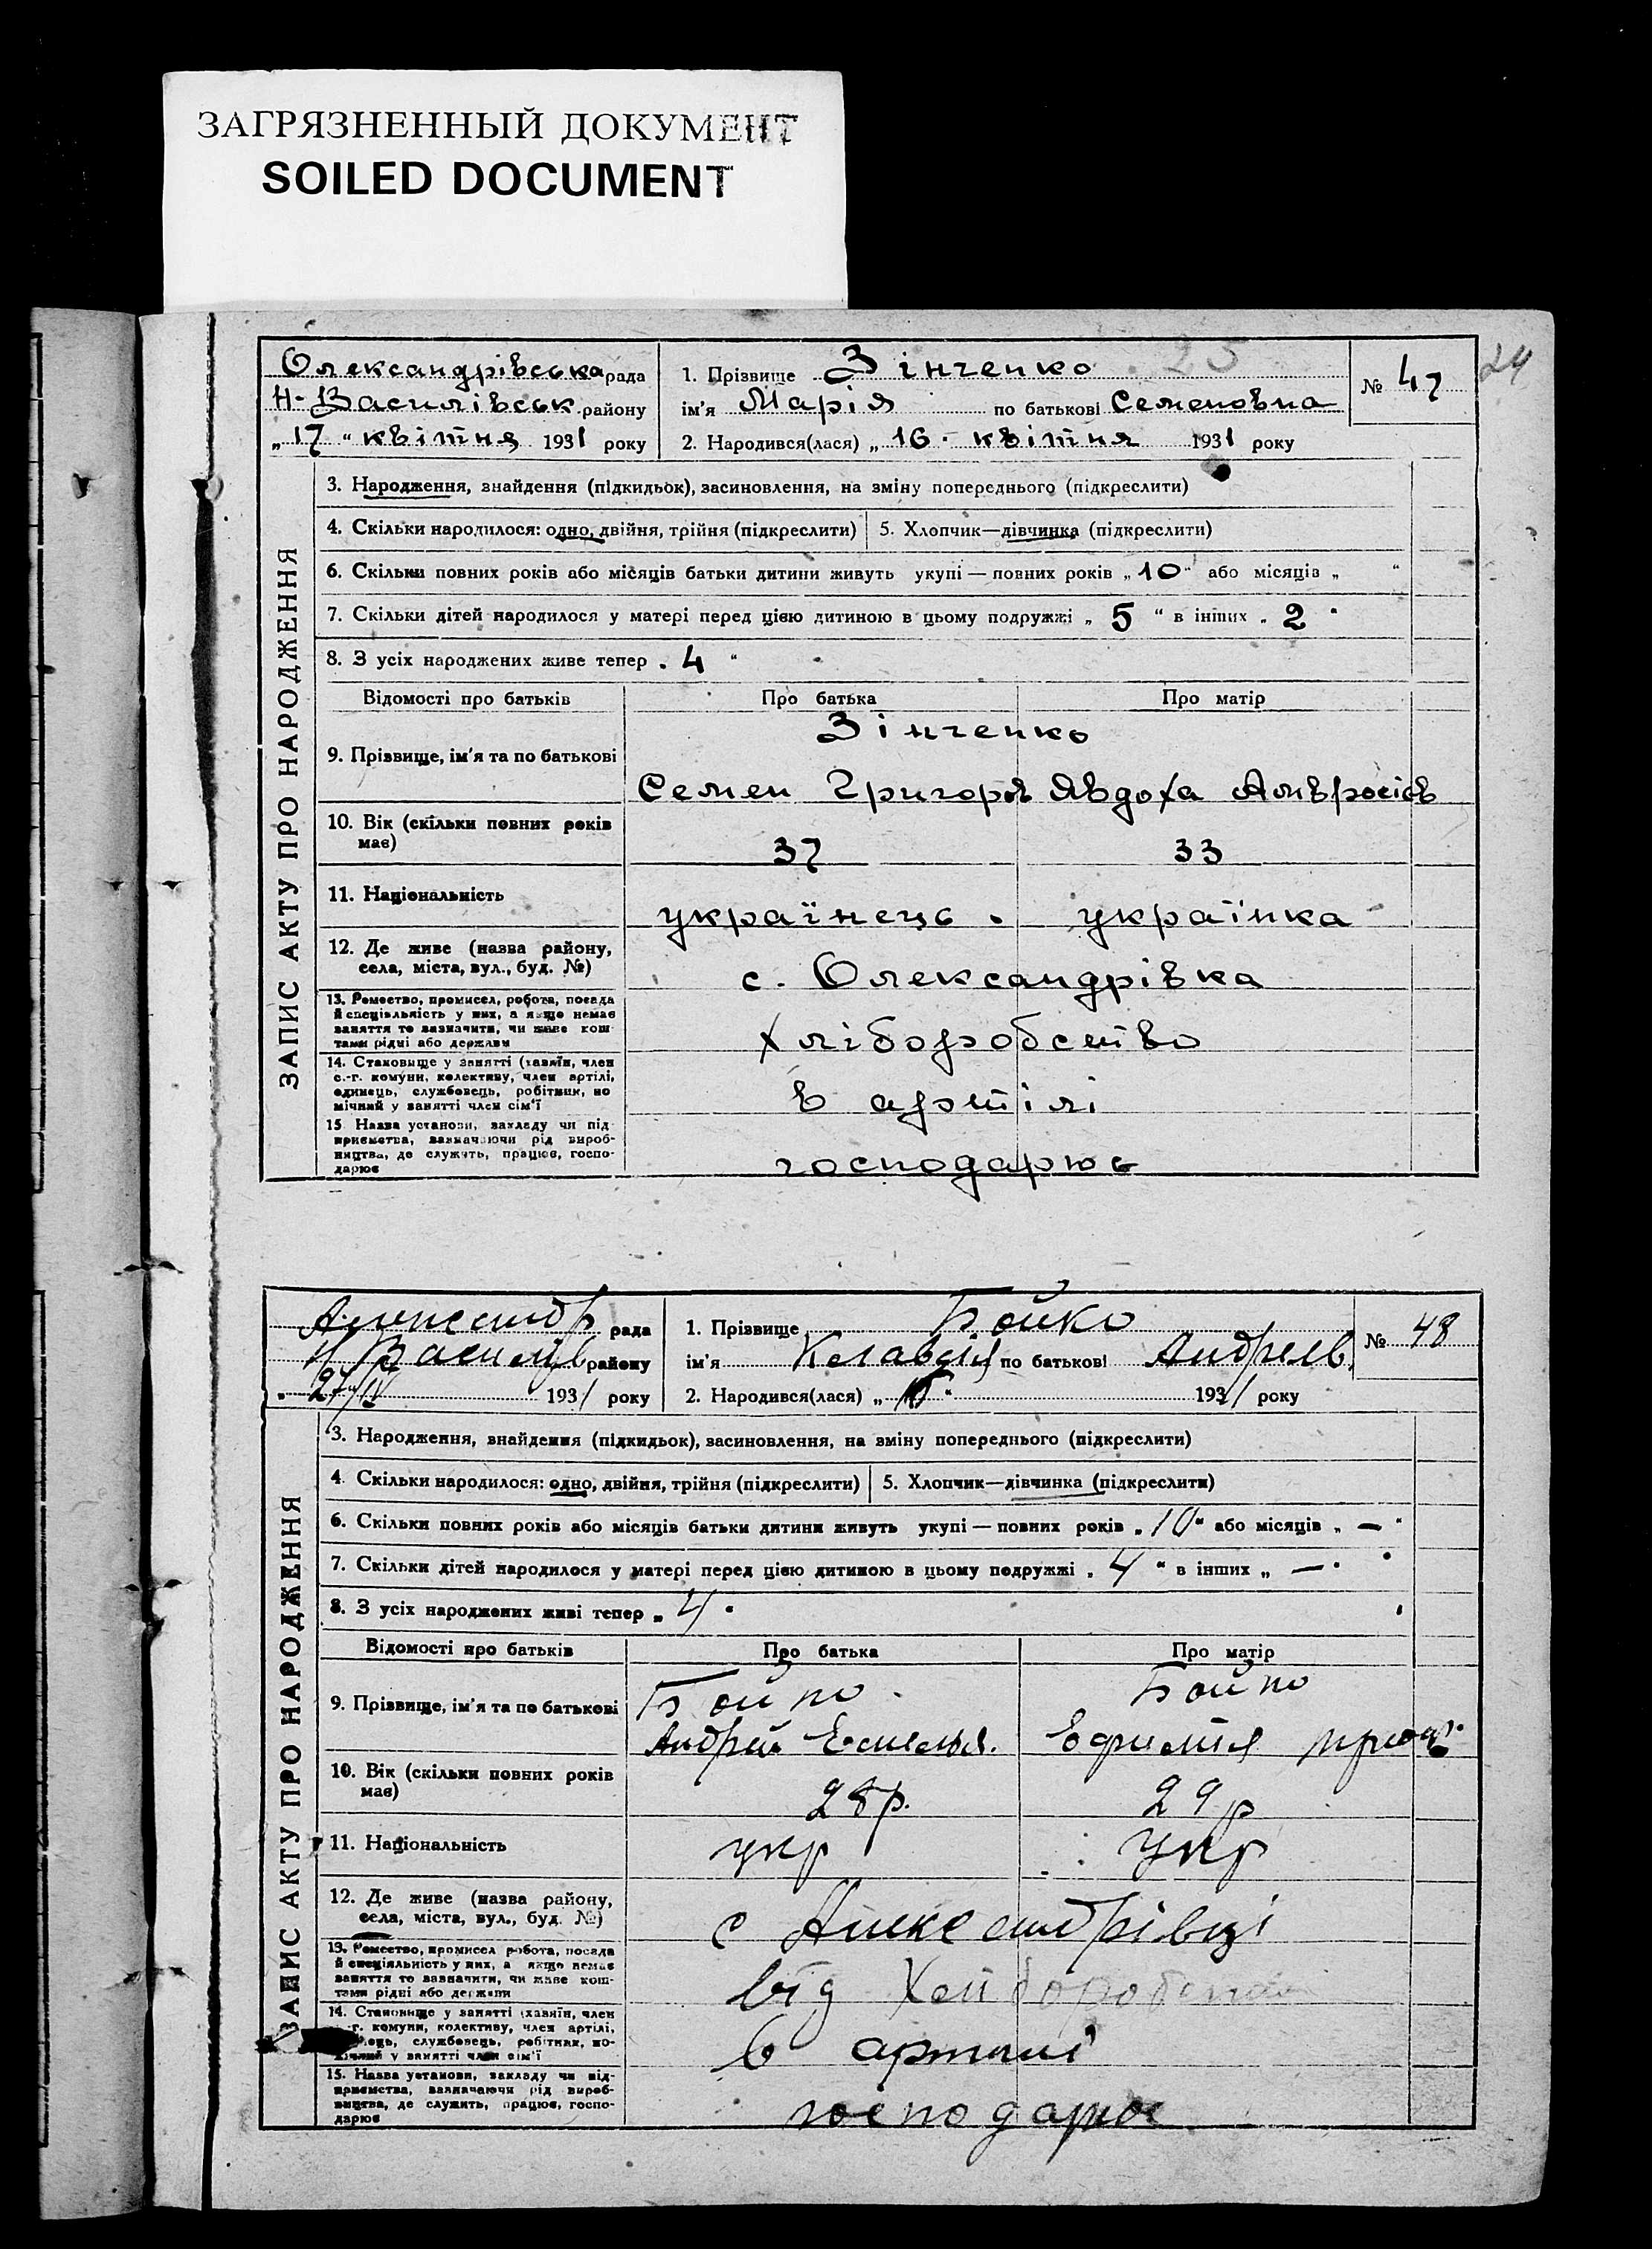 ЗАГРЯЗНЕННЫЙ ДОКУМЕНТ
SOILED DOCUMENT
25
24
Олександрівська рада
Н-Василівськ району
„17“ квітня 1931 року
1. Прізвище Зінченко
ім'я Марія по батькові Семеновна
2. Народився(лася) „16. квітня 1931 року
№ 47
ЗАПИС АКТУ ПРО НАРОДЖЕННЯ
3. Народження, знайдення (підкидьок), засиновлення, на зміну попереднього (підкреслити)
4. Скільки народилося: одно, двійня, трійня (підкреслити) 5. Хлопчик—дівчинка (підкреслити)
6. Скільки повних років або місяців батьки дитини живуть укупі — повних років „10“ або місяців „ “
7. Скільки дітей народилося у матері перед цією дитиною в цьому подружжі „ 5 “ в інших „ 2 “
8. З усіх народжених живе тепер „ 4 “
Відомості про батьків Про батька Про матір
Зінченко
9. Прізвище, ім'я та по батькові
Семен Григоров Явдоха Амвросієв
10. Вік (скільки повних років
має)
37 33
11. Національність
українець. українка
12. Де живе (назва району,
села, міста, вул., буд. №)
с. Олександрівка
13. Ремество, промисел, робота, посада
й спеціяльність у них, а якщо немає
заняття то зазначити, чи живе кош-
тами рідні або держави
хліборобство
14. Становище у занятті (хазяїн, член
с.-г. комуни, колективу, член артілі,
одинець, службовець, робітник, по-
мічний у занятті член сім'ї
в артілі
15. Назва установи, закладу чи під-
приємства, зазначаючи рід вироб-
ництва, де служить, працює, госпо-
дарює
господарює
Александр рада
Н Василів району
27/IV 1931 року
1. Прізвище Бойко
ім'я Клавдія по батькові Андреев.
2. Народився(лася) „ “ 1931 року
№ 48
ЗАПИС АКТУ ПРО НАРОДЖЕННЯ
3. Народження, знайдення (підкидьок), засиновлення, на зміну попереднього (підкреслити)
4. Скільки народилося: одно, двійня, трійня (підкреслити) 5. Хлопчик—дівчинка (підкреслити)
6. Скільки повних років або місяців батьки дитини живуть укупі — повних років „10“ або місяців „ — “
7. Скільки дітей народилося у матері перед цією дитиною в цьому подружжі „ 4 “ в інших „ — “
8. З усіх народжених живі тепер „ 4 “
Відомості про батьків Про батька Про матір
Бойко Бойко
9. Прізвище, ім'я та по батькові
Андрей Ефимия
10. Вік (скільки повних років
має)
28р. 29р
11. Національність
укр укр
12. Де живе (назва району,
села, міста, вул., буд. №)
с Александрівці
13. Ремество, промисел робота, посада
й спеціяльність у них, а якщо немає
заняття то зазначити, чи живе кош-
тами рідні або держави
від
14. Становище у занятті (хазяїн, член
с.-г. комуни, колективу, член артілі,
службовець, робітник, по-
мічний у занятті член сім'ї
в артилі
15. Назва установи, закладу чи під-
приємства, зазначаючи рід вироб-
ництва, де служить, працює, госпо-
дарює
господарює